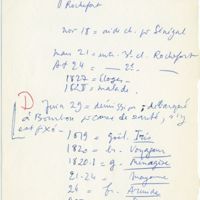 Rochefort
nov 18 = aide ch. pr Sénégal
mars 21 = entr. 3e cl. Rochefort
24 = — 2e —
1827 = éloges
1828 = malade.
D Juin 29 = démission, débarqué
à Bourbon pr cause de santé, s'y
est fixé.
1819 = goel.
1820 = br. Voyageur
1820.1 = g. Ménagère
21-24 = Mayenne
24 = fr.